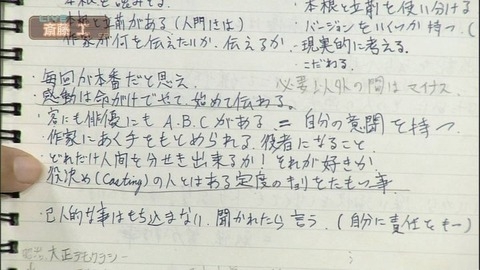 本根と立前を使い分ける
本根と立前がある(人間だは)
・バージョンをいくつか持つ.(
斎藤 工
作家が何を伝えたいか、伝えるか
・現実的に考える.
・こだわる.
・毎回が本番だと思え.
必要以外の間はマイナス
・感動は命がけでやって、始めて伝わる。
・客にも俳優にもA.B.Cがある = 自分の意聞を持つ.
・作家にあく手をもとめられる.役者になること.
・どれだけ人間を分せき出来るか!それが好きか.
・役決め(Casting)の人とはある定度のキョリをたもつ事.
・己人的な事はもち込まない.聞かれたら言う.(自分に責任をもつ)
大正デモクラシー